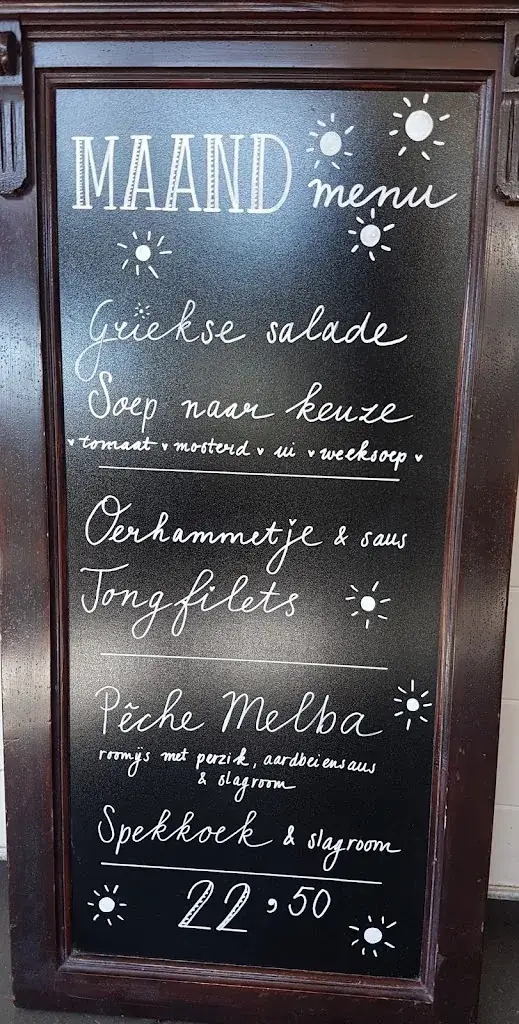 MAAND menu
Griekse salade
Soep naar keuze
tomaat ♥ mosterd ♥ ui ♥ weeksoep
Oerhammetje & saus
Tongfilets
Pêche Melba
roomijs met perzik, aardbeiensaus
& slagroom
Spekkoek & slagroom
22,50